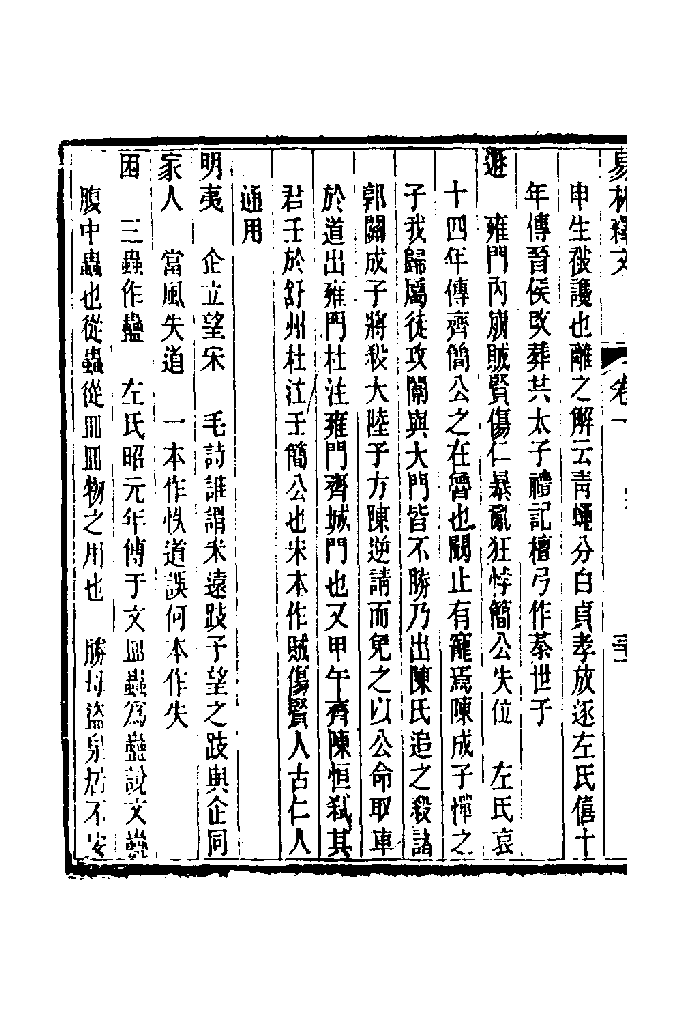 易林釋文 卷一
申生被讒也離之解云青蠅分白貞孝放逐左氏僖十
年傳晉侯改葬共太子禮記檀弓作恭世子
遯 雍門內崩賊賢傷仁暴亂狂悖簡公失位 左氏哀
十四年傳齊簡公之在魯也闞止有寵焉陳成子憚之
子我歸屬徒攻闈與大門皆不勝乃出陳氏追之殺諸
郭關成子將殺大陸子方陳逆請而免之以公命取車
於道出雍門杜注雍門齊城門也又甲午齊陳恒弒其
君壬於舒州杜注壬簡公也宋本作賊傷賢人古仁人
通用
明夷 企立望宋 毛詩誰謂宋遠跂予望之跂與企同
家人 當風失道 一本作佚道誤何本作失
困 三蟲作蠱 左氏昭元年傳于文皿蟲為蠱說文蠱
腹中蟲也從蟲從皿皿物之用也 勝母盜泉居不安